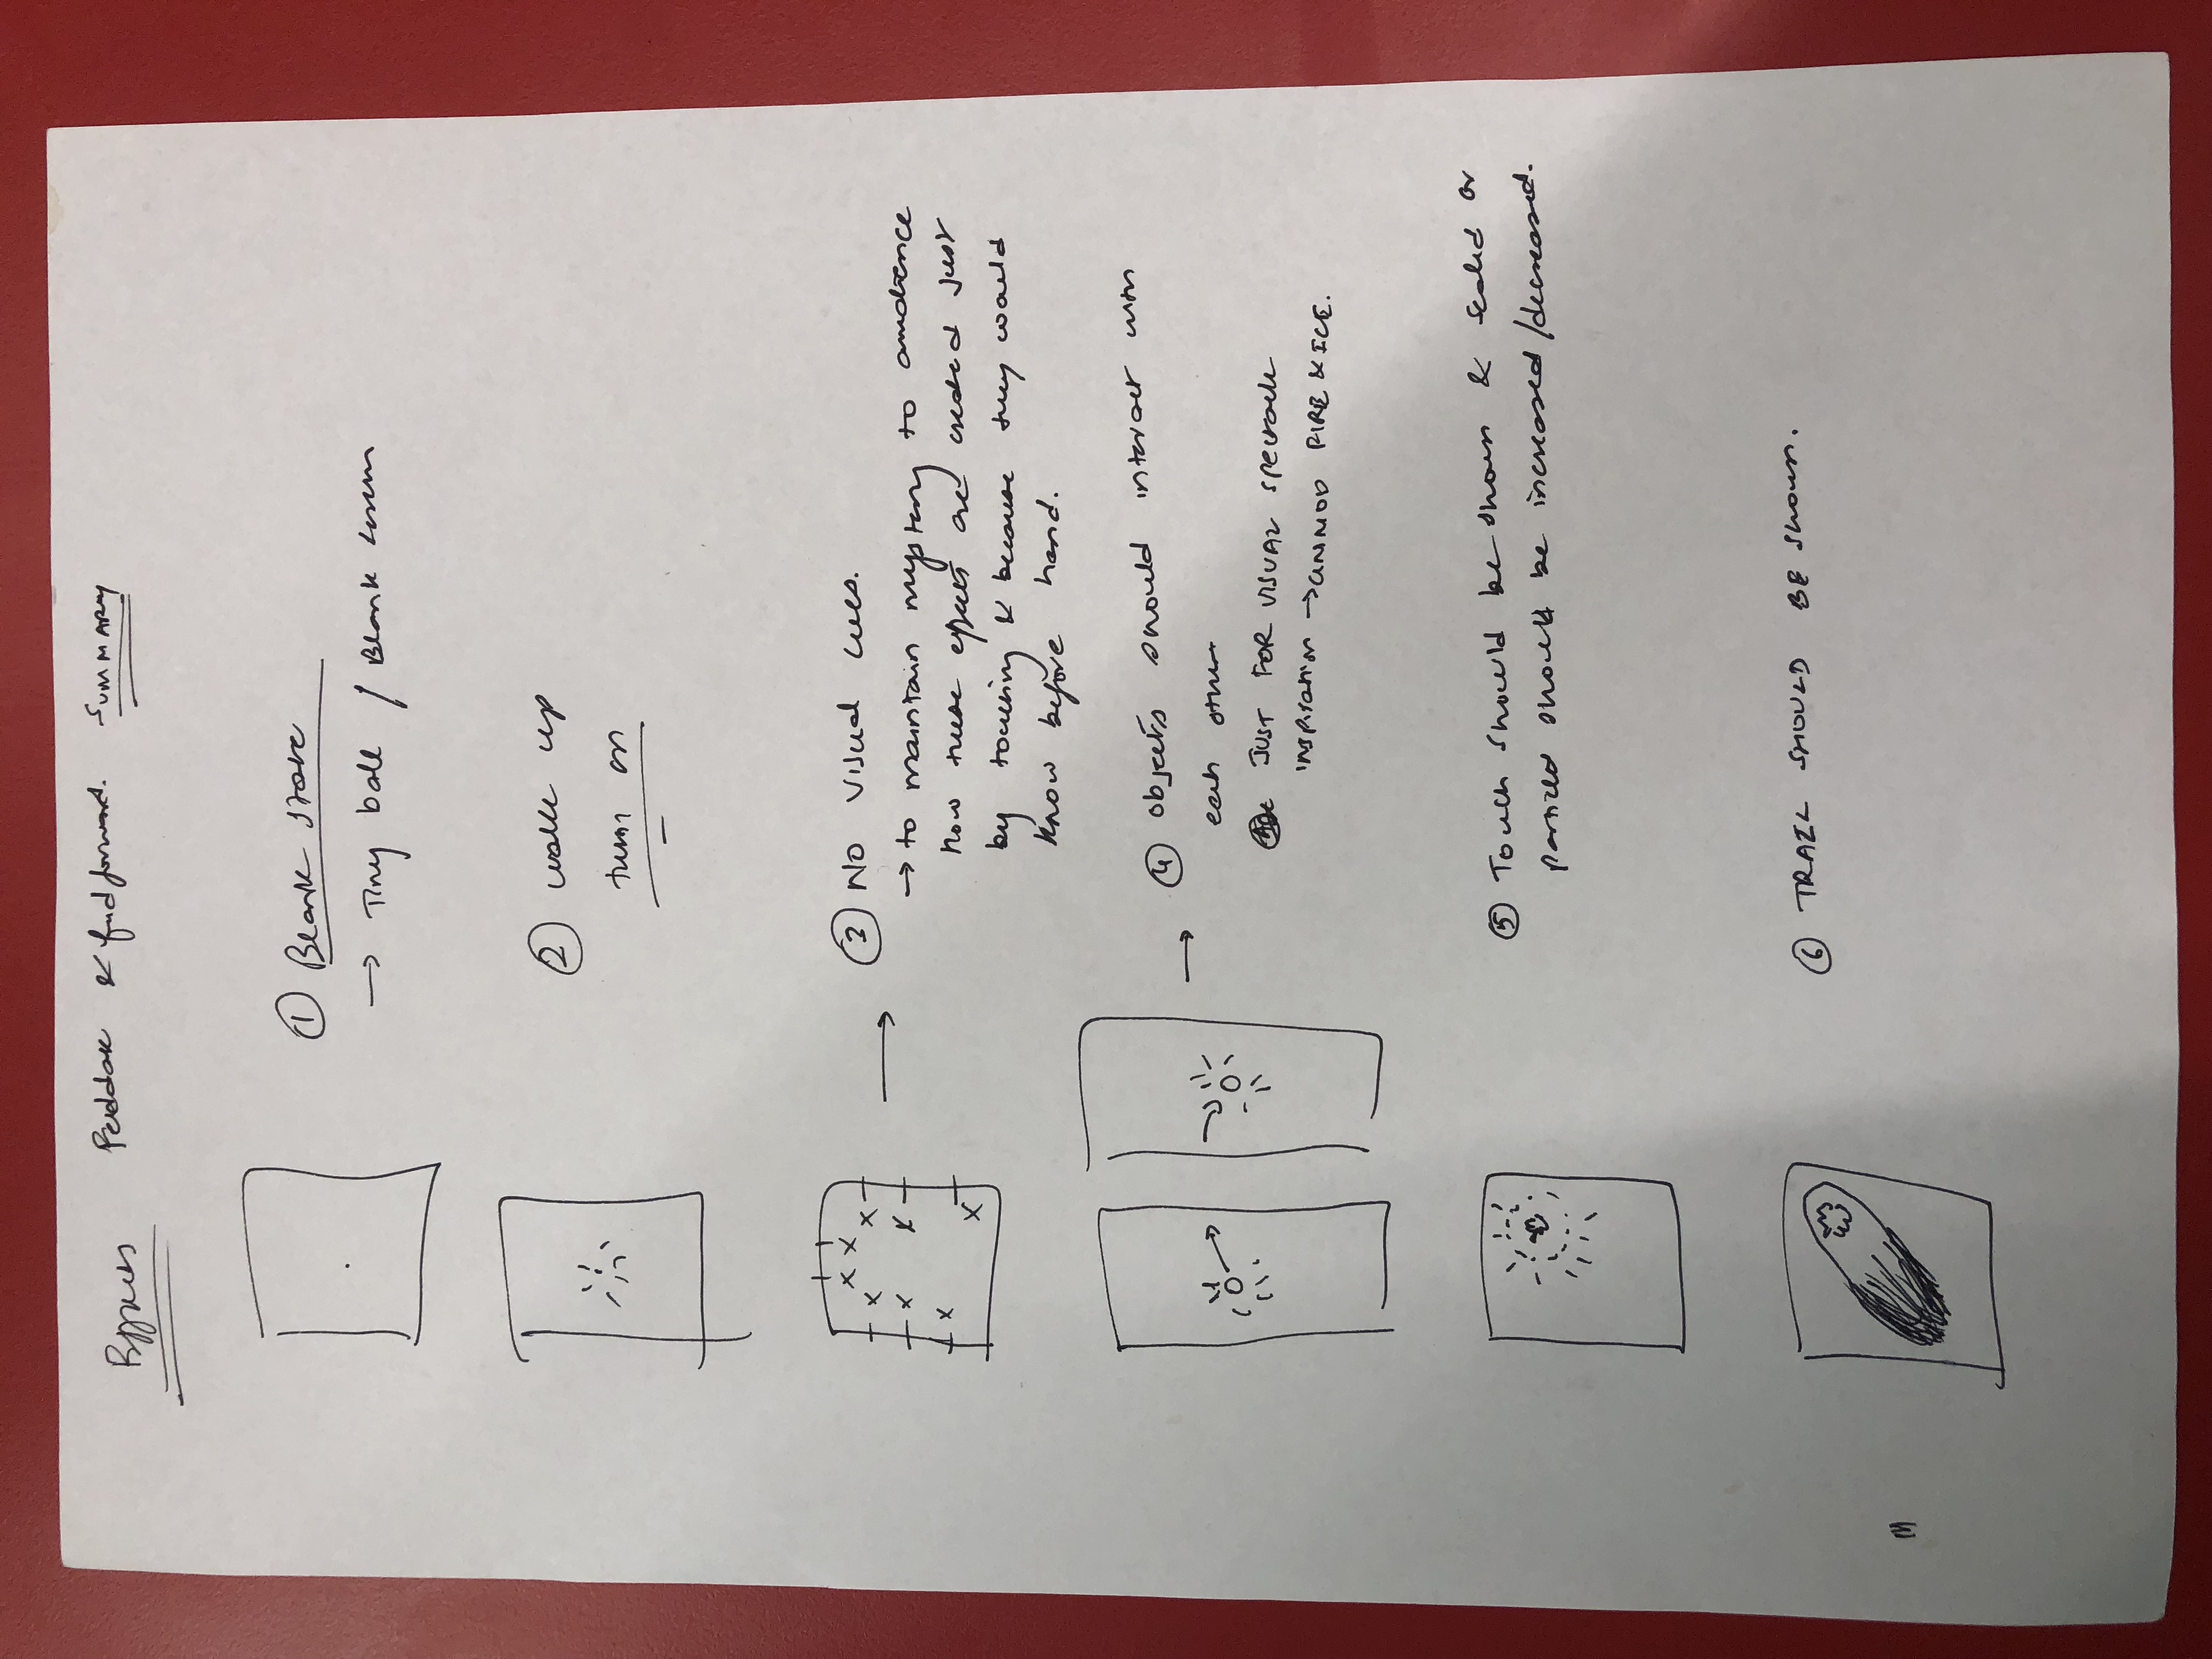 & feedforward. SUMMARY
① Blank state
→ Tiny ball / Blank screen
② walk up
turn on
③ NO Visual cues.
→ to maintain mystery to audience
how these effects are created just
by touching & because they would
know before hand.
④ objects should interact with
each other
JUST FOR VISUAL spectacle
inspiration → FIRE & ICE.
⑤ Touch should be shown & scaled or
particles should be increased/decreased.
⑥ TRAIL SHOULD BE shown.